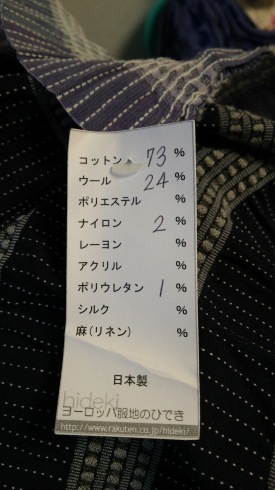 コットン 73 %
ウール 24 %
ポリエステル %
ナイロン 2 %
レーヨン %
アクリル %
ポリウレタン 1 %
シルク %
麻(リネン) %
日本製
hideki
ヨーロッパ服地のひでき
http://www.rakuten.co.jp/hideki/